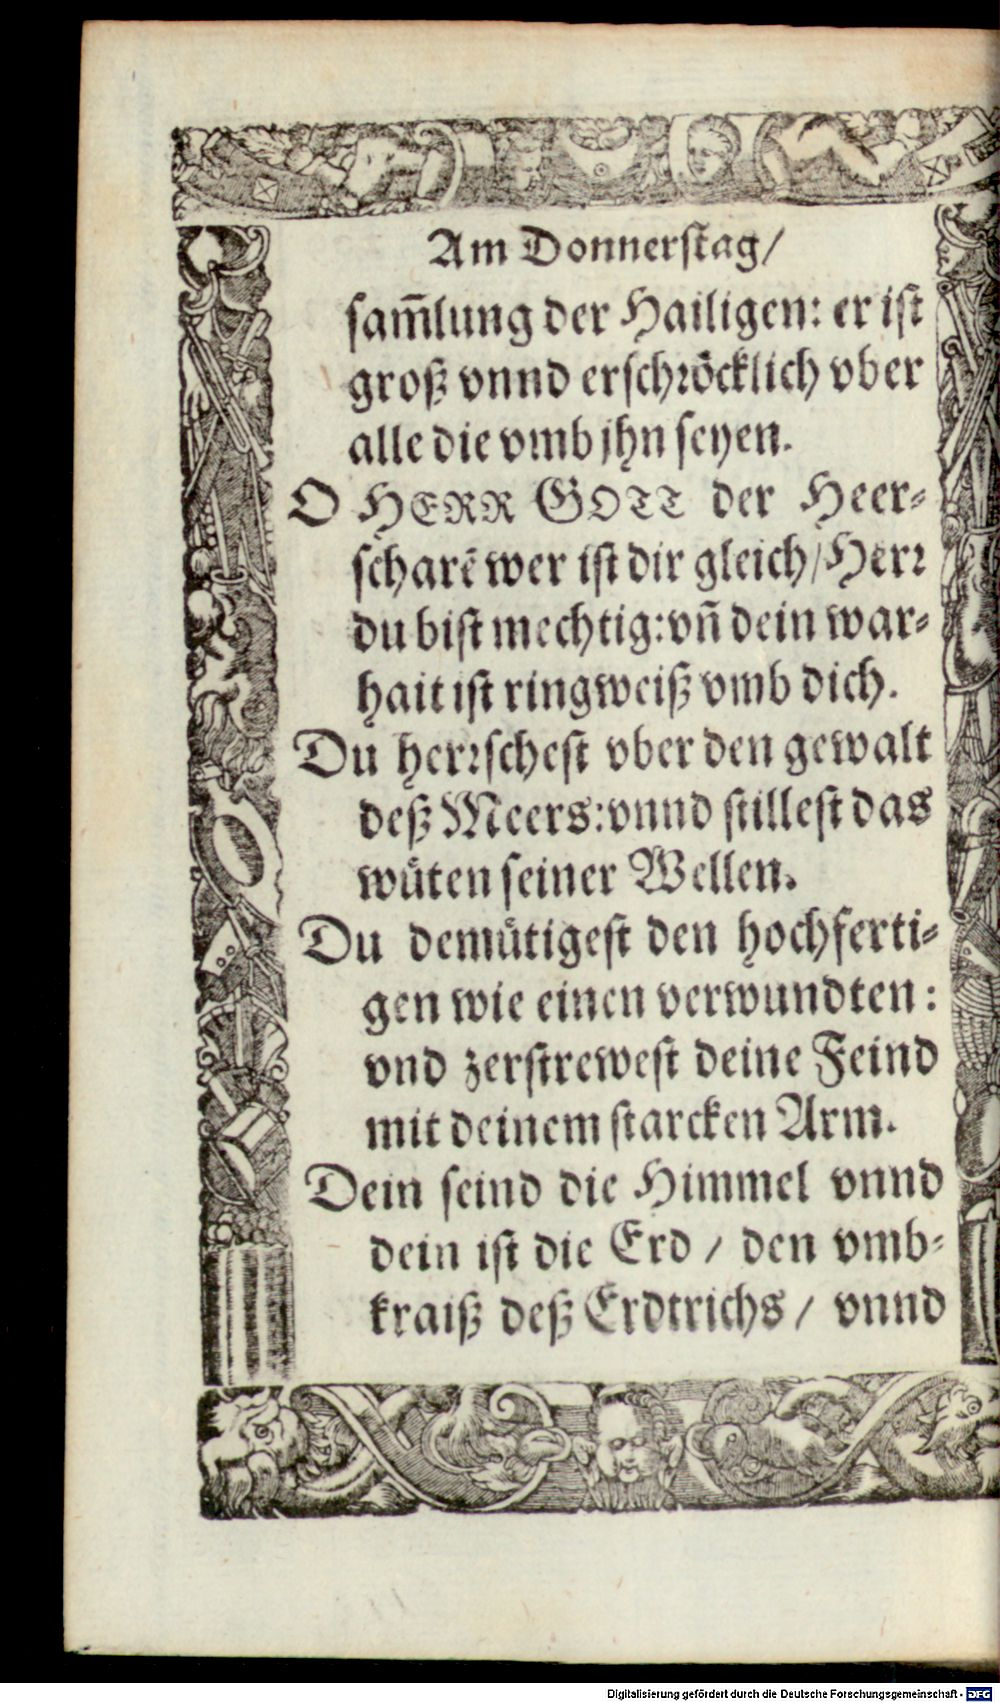 Am Donnerſtag/
ſam̃lung der Hailigen: er iſt
groß vnnd erſchꝛoͤcklich vber
alle die vmb jhn ſeyen.
O HERR GOTT der Heer⸗
ſcharẽ wer iſt dir gleich/Herꝛ
du biſt mechtig:vñ dein war⸗
hait iſt ringweiß vmb dich.
Du herꝛſcheſt vber den gewalt
deß Meers:vnnd ſtilleſt das
wuͤten ſeiner Wellen.
Du demuͤtigeſt den hochferti⸗
gen wie einen verwundten:
vnd zerſtreweſt deine Feind
mit deinem ſtarcken Arm.
Dein ſeind die Himmel vnnd
dein iſt die Erd / den vmb⸗
kraiß deß Erdtrichs / vnnd
Digitalisierung gefördert durch die Deutsche Forschungsgemeinschaft - DFG